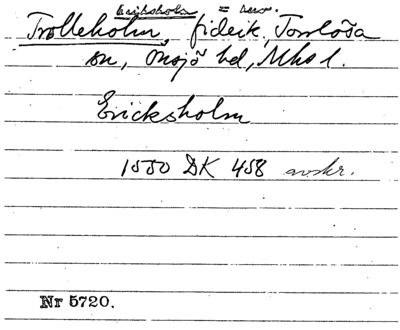 Eriksholm = senr.
Trolleholm, fideik., Torrlösa
sn, Onsjö hd, Mhs l.
Ericksholm
1550 DK 458 avskr.
Nr 5720.